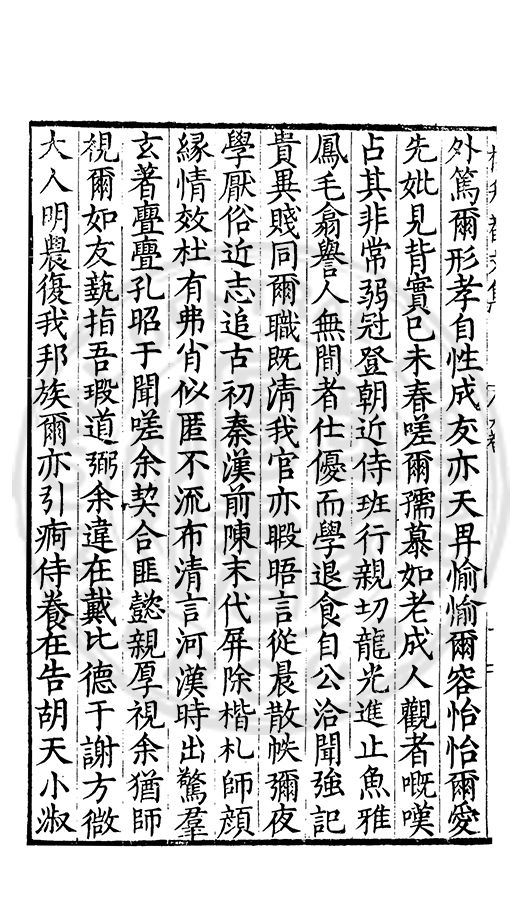 外篤爾形孝自性成友亦天畀愉愉爾容怡怡爾愛
先妣見背實巳未春嗟爾孺慕如老成人觀者嘅嘆
占其非常弱冠登朝近侍班行親切龍光進止魚雅
鳳毛翕譽人無間者仕優而學退食自公洽聞強記
貴異賤同爾職既清我官亦暇晤言從晨散帙彌夜
學厭俗近志追古初秦漢前陳末代屏除楷札師顔
緣情效杜有弗肖似匿不流布清言河漢時出驚羣
玄著亹亹孔昭于聞嗟余契合匪懿親厚視余猶師
視爾如友藝指吾瑕道弼余違在戴比德于謝方微
大人明農復我邦族爾亦引痾侍養在告胡天小淑